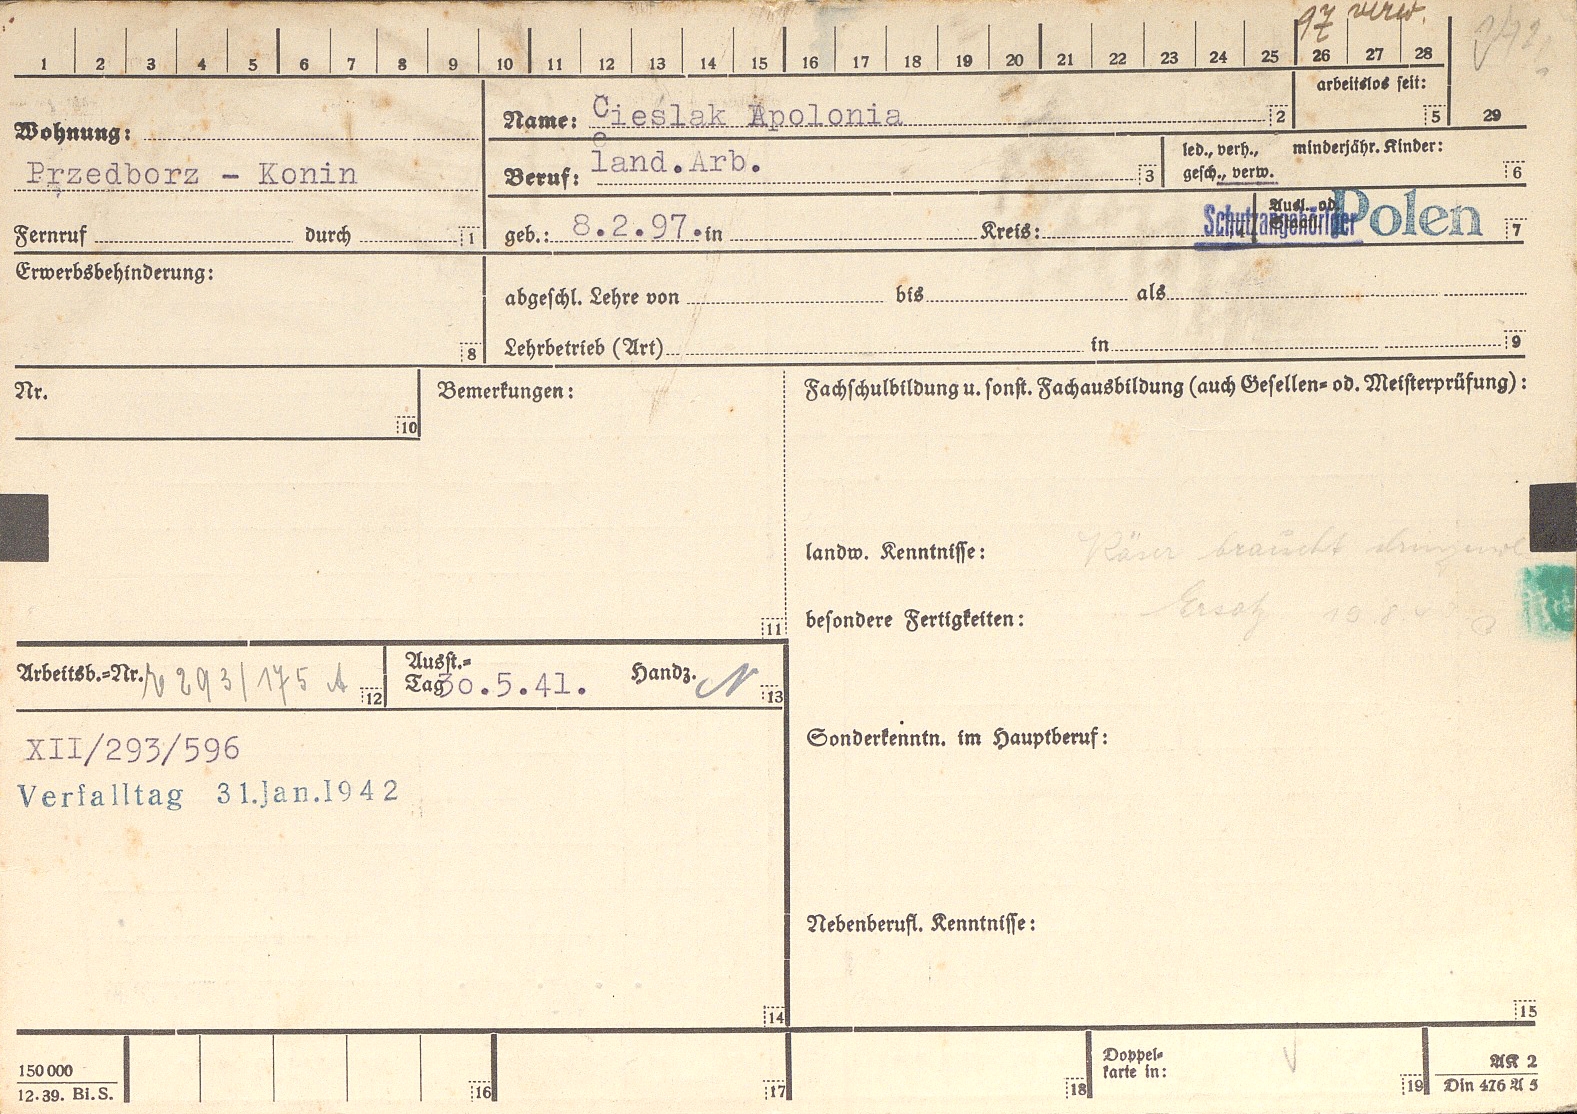 97 verw.
1 2 3 4 5 6 7 8 9 10 11 12 13 14 15 16 17 18 19 20 21 22 23 24 25 26 27 28
Wohnung:
Przedborz - Konin
Fernruf durch 1
Name: Cieslak Apolonia 2
arbeitslos seit: 5 29
Beruf: land.Arb. 3
led., verh., gesch., verw.
minderjähr. Kinder: 6
geb.: 8.2.97. in Kreis: 4
Schutzangehöriger Polen 7
Erwerbsbehinderung: 8
abgeschl. Lehre von bis als
Lehrbetrieb (Art) in 9
Nr. 10
Bemerkungen: 11
Fachschulbildung u. sonst. Fachausbildung (auch Gesellen= od. Meisterprüfung):
landw. Kenntnisse: Käser braucht dringend
besondere Fertigkeiten: Ersatz
Arbeitsb.=Nr. 293/175 A 12
Ausst.=
Tag 30.5.41. Handz. N 13
XII/293/596
Verfalltag 31.Jan.1942
Sonderkenntn. im Hauptberuf:
Nebenberufl. Kenntnisse:
14 15
150 000
12.39. Bi.S.
16 17 18
Doppel=
karte in: 19
AK 2
Din 476 A 5